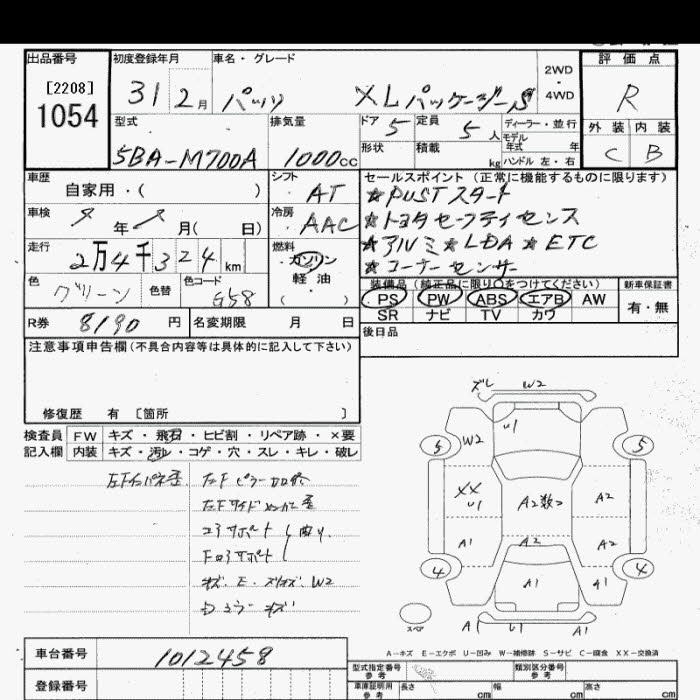 出品番号 初度登録年月 車名・グレード 評価点
[2208] 31 2月 パッソ XLパッケージS 2WD・4WD R
1054
型式 排気量 ドア 5 定員 5人 ディーラー・並行 外装 内装
5BA-M700A 1000cc 形状 積載 kg モデル年式 年 C B
ハンドル 左・右
車歴 自家用・( ) シフト AT セールスポイント(正常に機能するものに限ります)
★PUSTスタート
車検 年 月( 日) 冷房 AAC ★トヨタセーフティセンス
走行 2万4千324km 燃料 ガソリン ★アルミ★LDA★ETC
軽油 ★コーナーセンサー
色 グリーン 色替 色コード G58 ( )
装備品(純正品に限り○をつけてください) 新車保証書
PS PW ABS エアB AW 有・無
SR ナビ TV カワ
R券 8190円 名変期限 月 日 後日品
注意事項申告欄(不具合内容等は具体的に記入して下さい)
修復歴 有 〔箇所 〕
検査員 FW キズ・飛石・ヒビ割・リペア跡・×要
記入欄 内装 キズ・汚レ・コゲ・穴・スレ・キレ・破レ
左Fインパネ歪 左Fピラー
左Fサイドメンバー歪
コアサポート 曲り
Fロアサポート
キズ・E・ズレ W2
ミラーキズ
ズレ W2
U1
5 W2 5
XX U1 A2数コ A2
A1 A2 A2
4 A1 A1 4
スペア A1 U1 A1
A-キズ E-エクボ U-凹み W-補修跡 S-サビ C-腐食 XX-交換済
車台番号 1012458
型式指定番号 参考 類別区分番号 参考
登録番号 車庫証明用 参考 長さ cm 幅 cm 高さ cm